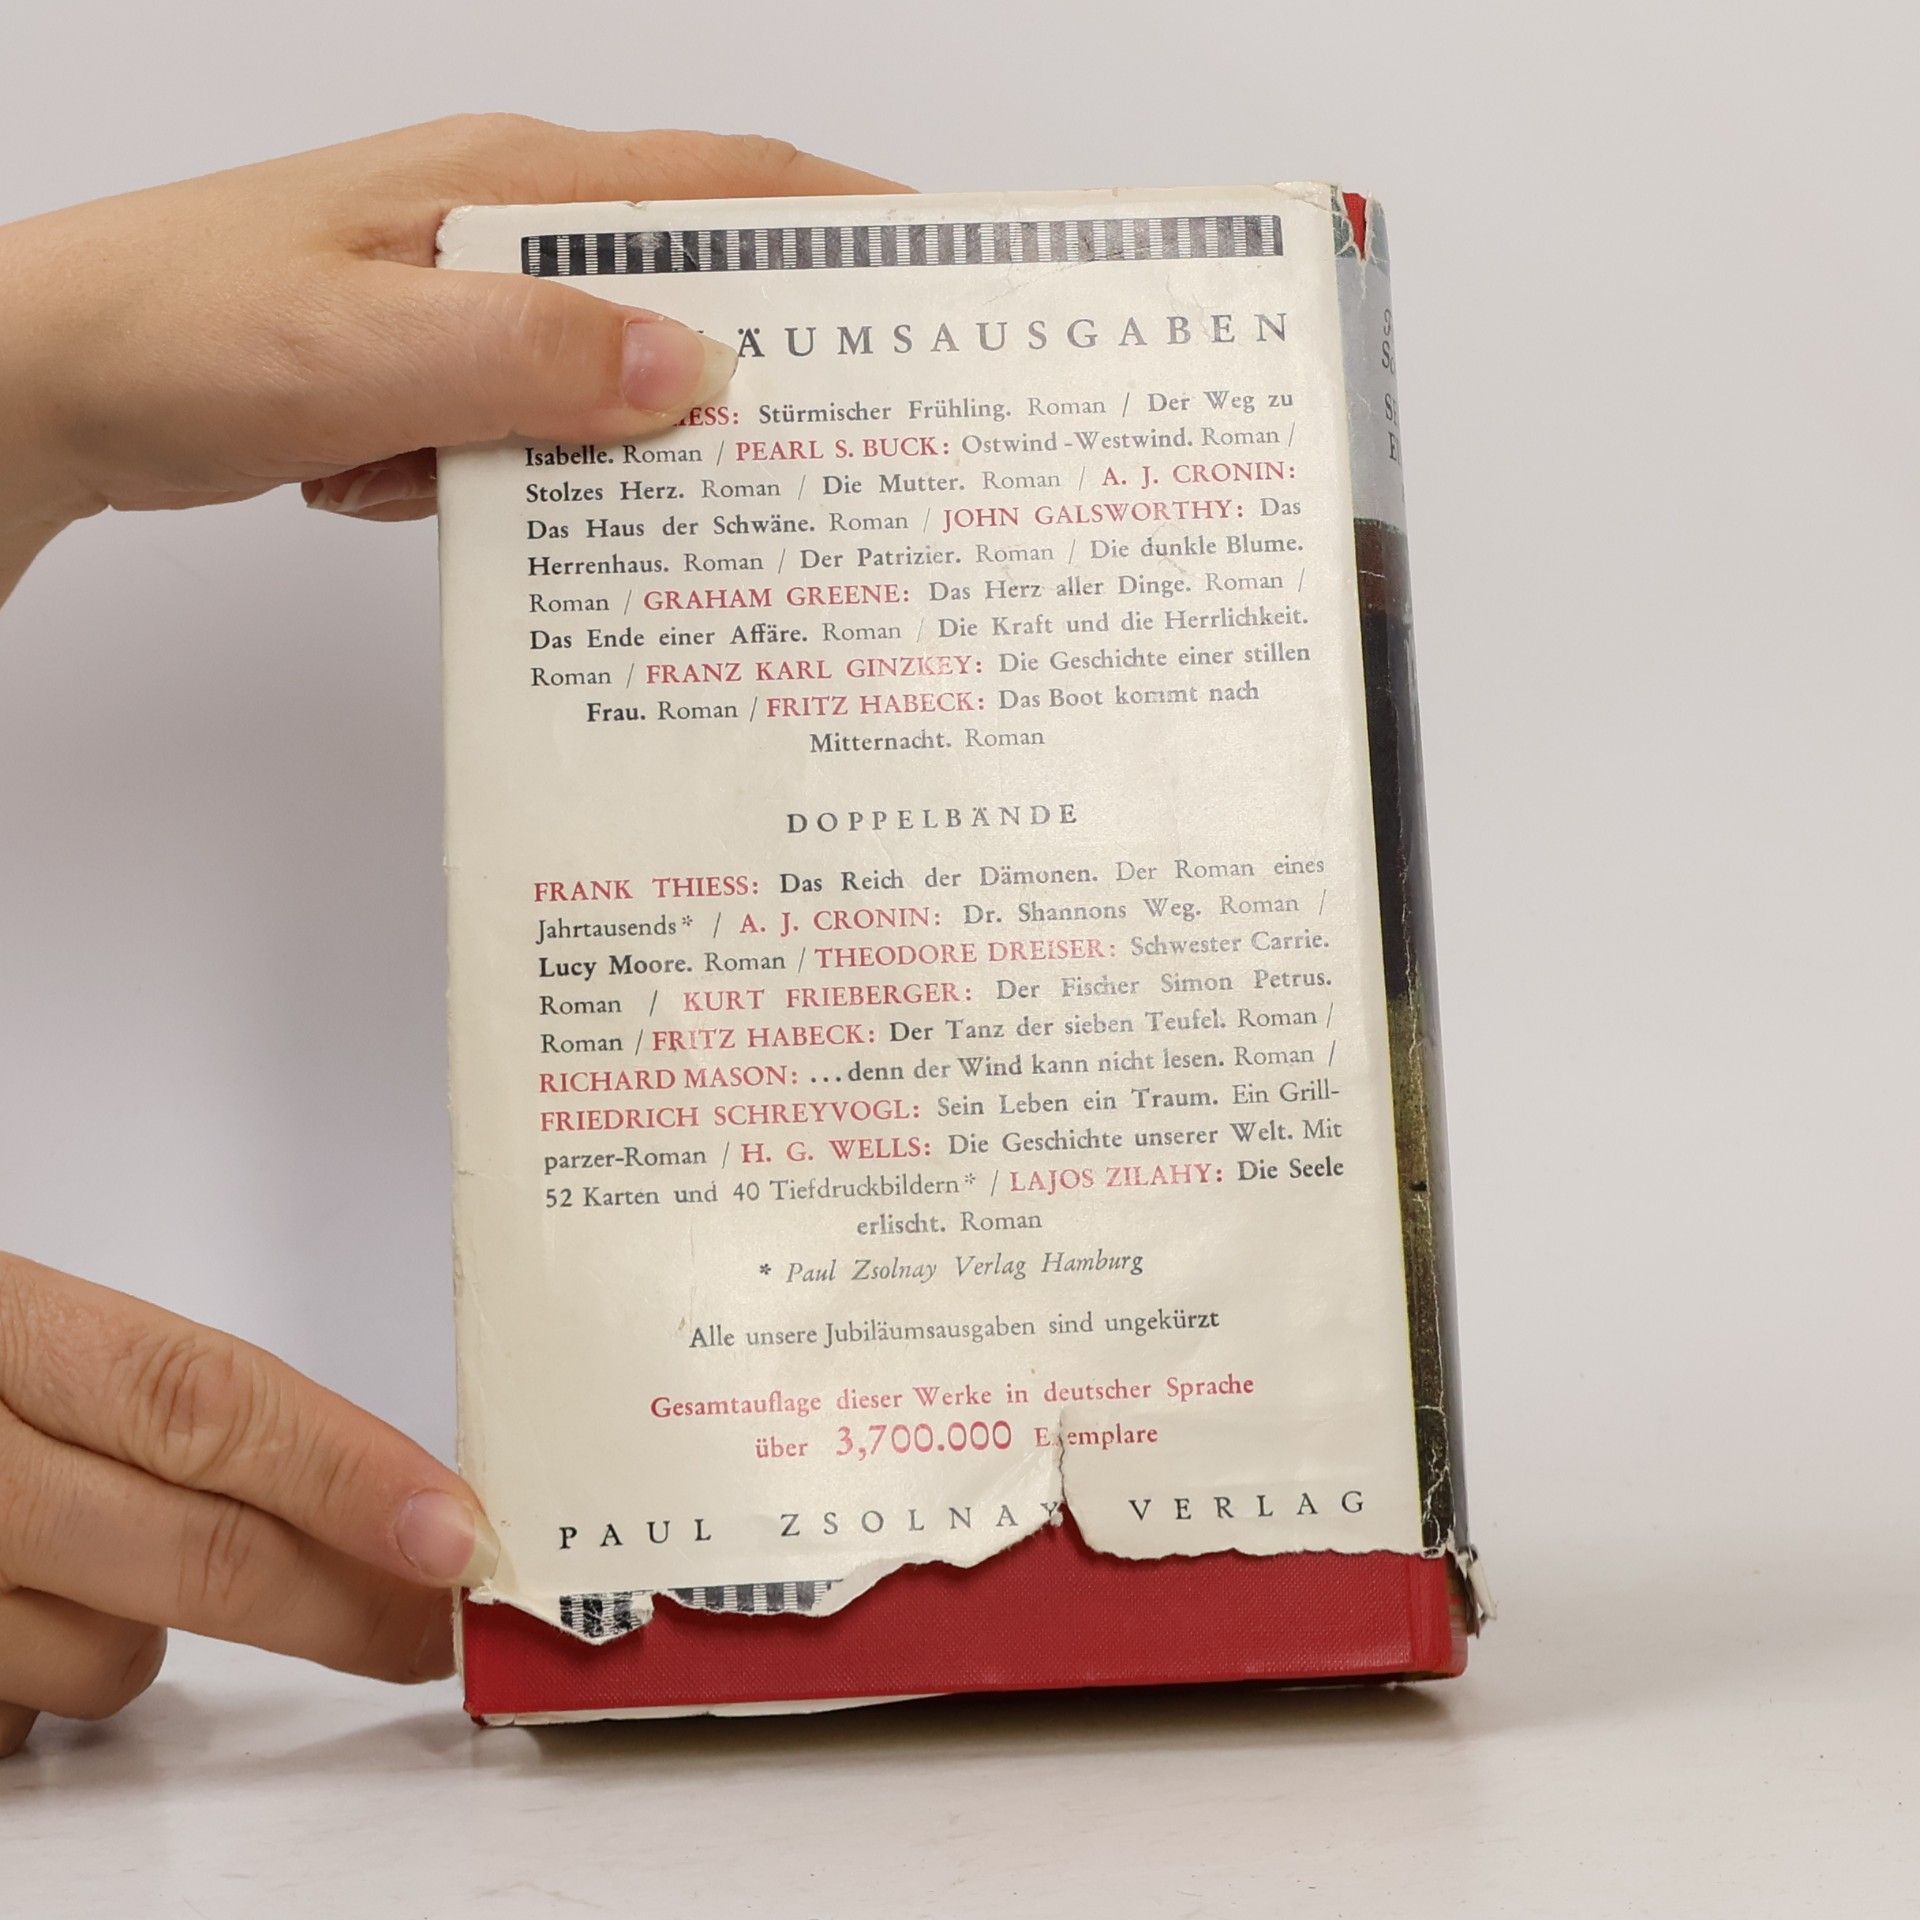 ÄUMSAUSGABEN
IESS: Stürmischer Frühling. Roman / Der Weg zu
Isabelle. Roman / PEARL S. BUCK: Ostwind-Westwind. Roman /
Stolzes Herz. Roman / Die Mutter. Roman / A. J. CRONIN:
Das Haus der Schwäne. Roman / JOHN GALSWORTHY: Das
Herrenhaus. Roman / Der Patrizier. Roman / Die dunkle Blume.
Roman / GRAHAM GREENE: Das Herz aller Dinge. Roman /
Das Ende einer Affäre. Roman / Die Kraft und die Herrlichkeit.
Roman / FRANZ KARL GINZKEY: Die Geschichte einer stillen
Frau. Roman / FRITZ HABECK: Das Boot kommt nach
Mitternacht. Roman
DOPPELBÄNDE
FRANK THIESS: Das Reich der Dämonen. Der Roman eines
Jahrtausends* / A. J. CRONIN: Dr. Shannons Weg. Roman /
Lucy Moore. Roman / THEODORE DREISER: Schwester Carrie.
Roman / KURT FRIEBERGER: Der Fischer Simon Petrus.
Roman / FRITZ HABECK: Der Tanz der sieben Teufel. Roman /
RICHARD MASON: ...denn der Wind kann nicht lesen. Roman /
FRIEDRICH SCHREYVOGL: Sein Leben ein Traum. Ein Grill-
parzer-Roman / H. G. WELLS: Die Geschichte unserer Welt. Mit
52 Karten und 40 Tiefdruckbildern* / LAJOS ZILAHY: Die Seele
erlischt. Roman
* Paul Zsolnay Verlag Hamburg
Alle unsere Jubiläumsausgaben sind ungekürzt
Gesamtauflage dieser Werke in deutscher Sprache
über 3,700.000 Exemplare
PAUL ZSOLNAY VERLAG